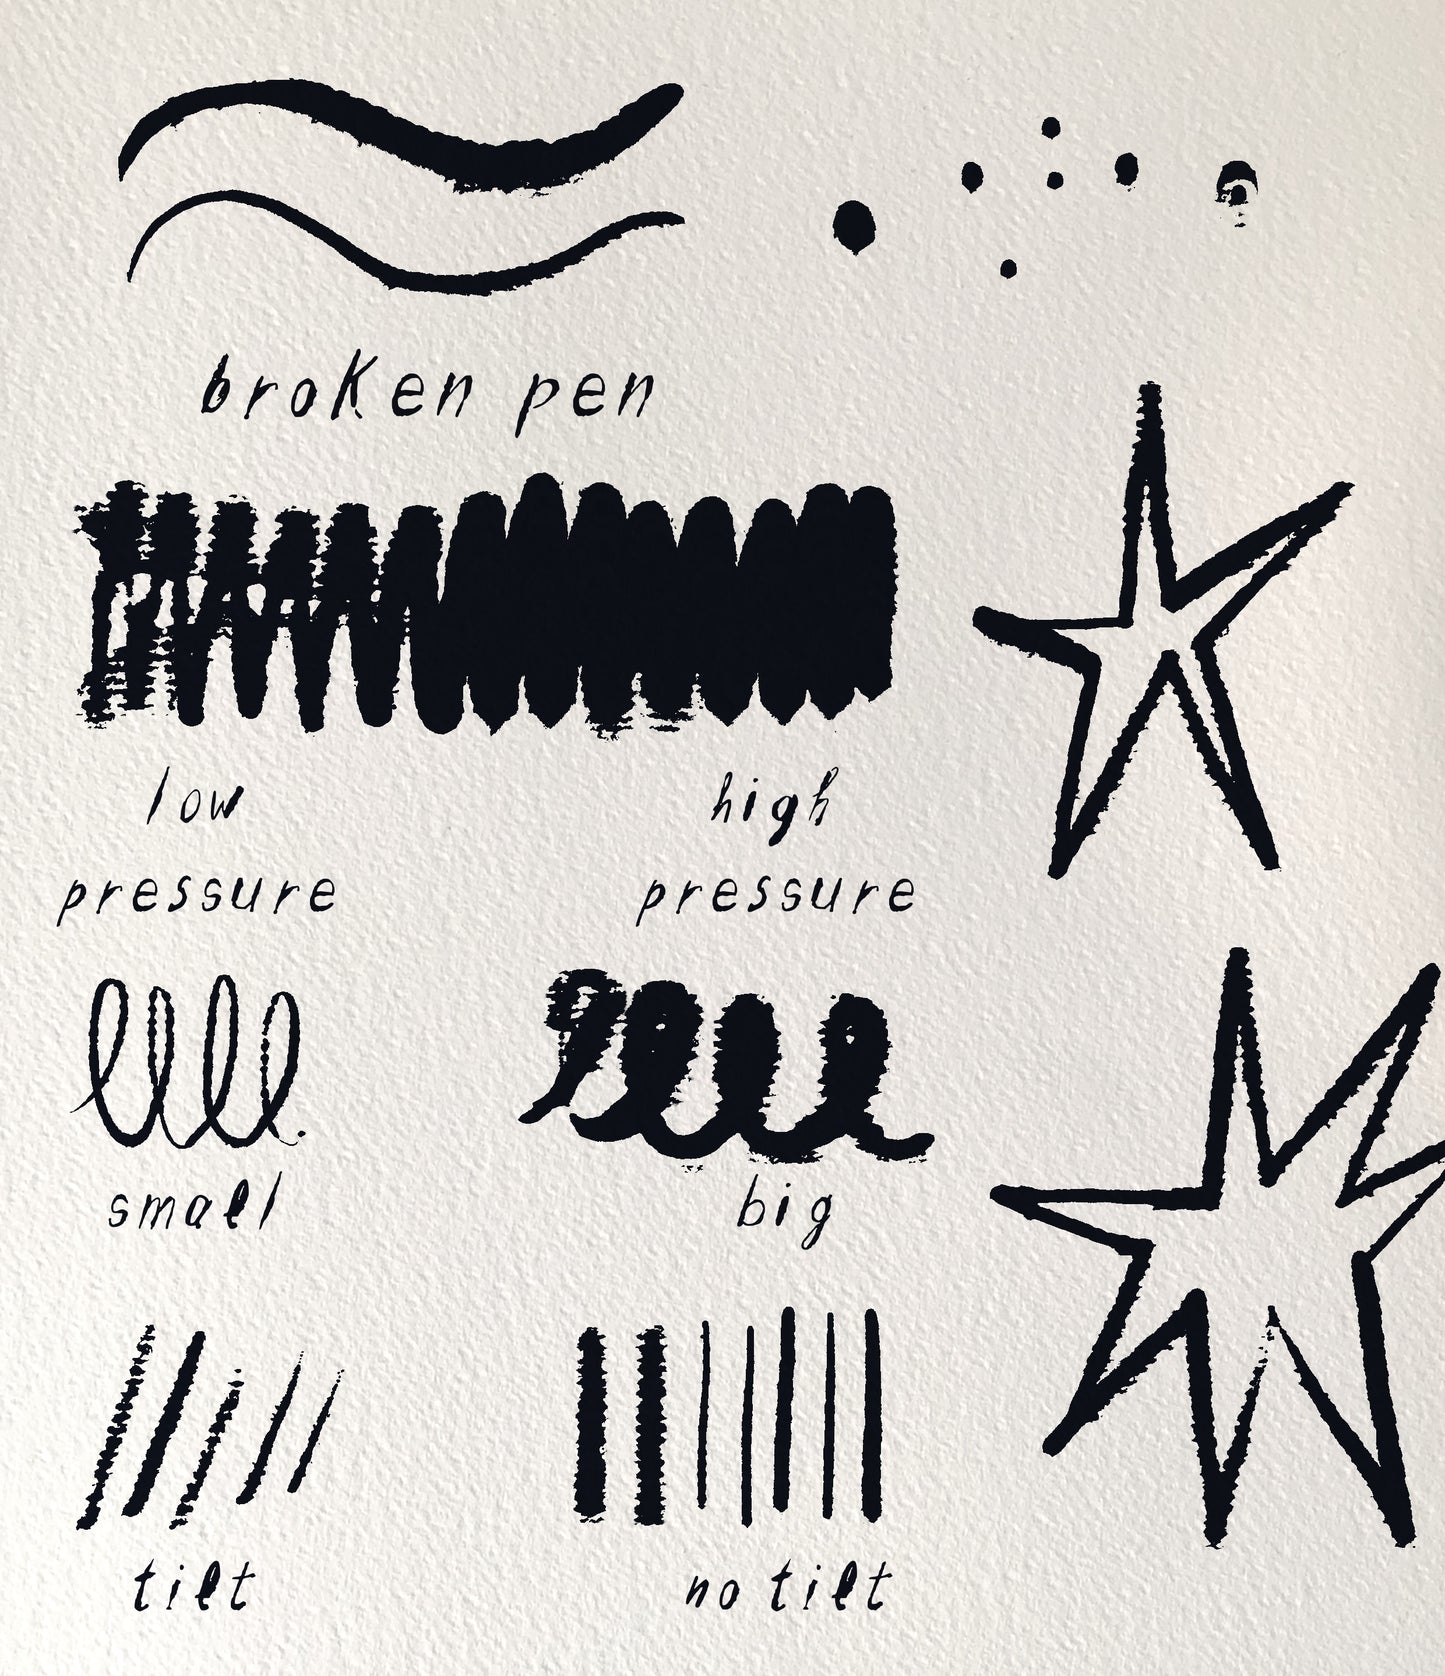 broken pen
low
pressure
high
pressure
small
big
tilt
no tilt